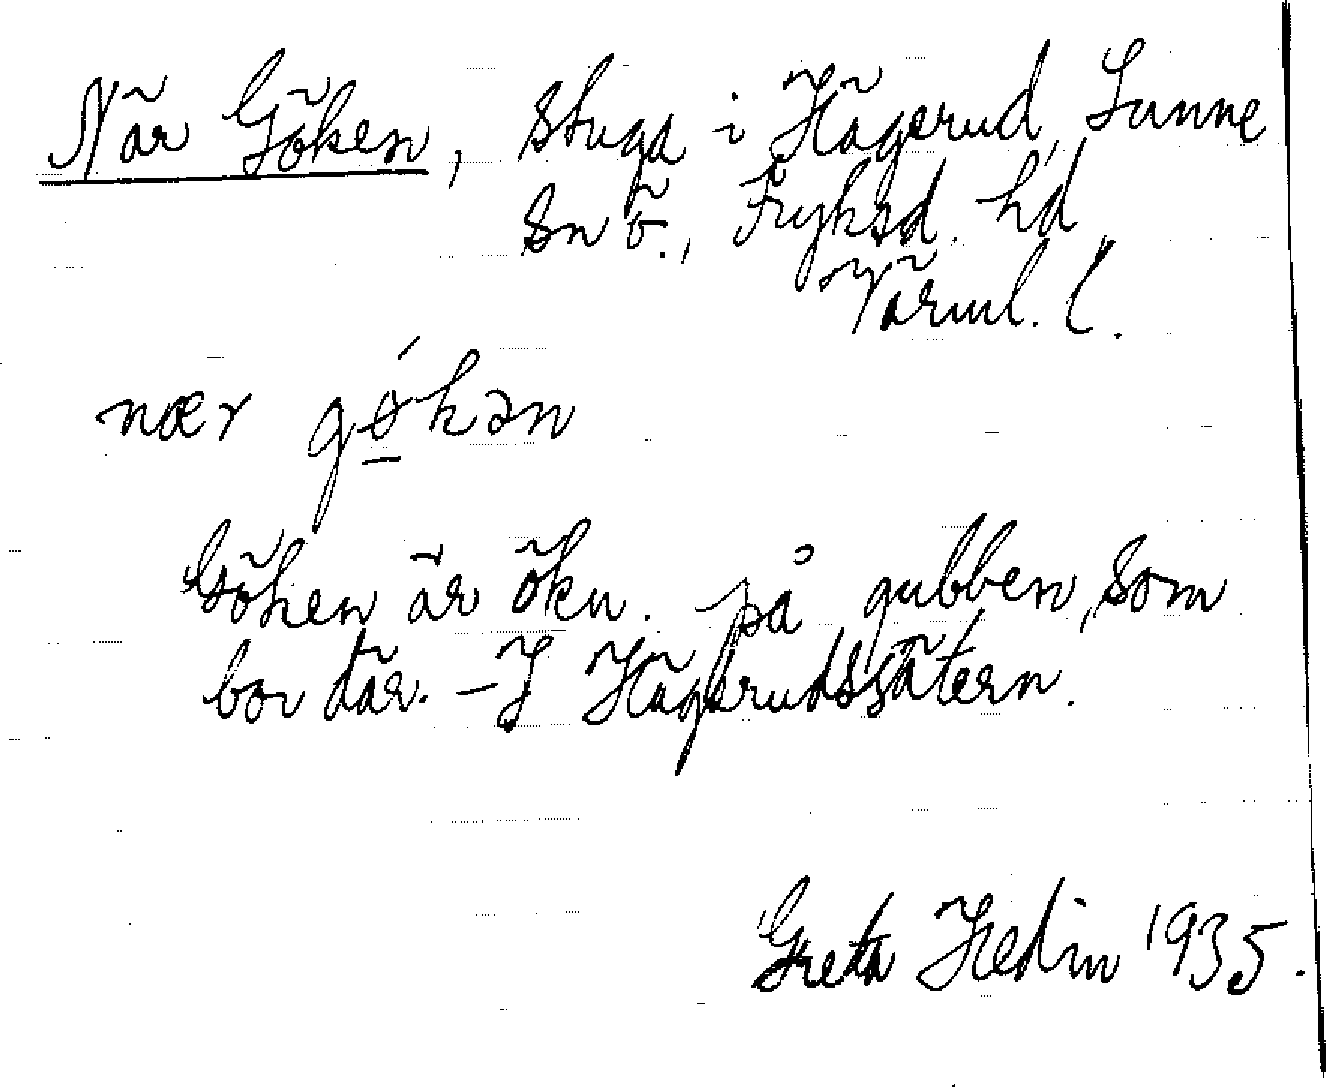 När Göken, stuga i Hägerud, Sunne
sn ö., Fryksd. hd
Värml. l.
nær gǿkən
Göken är ökn. på gubben, som
bor där. – I Hägerudssätern.
Greta Hedin 1935.